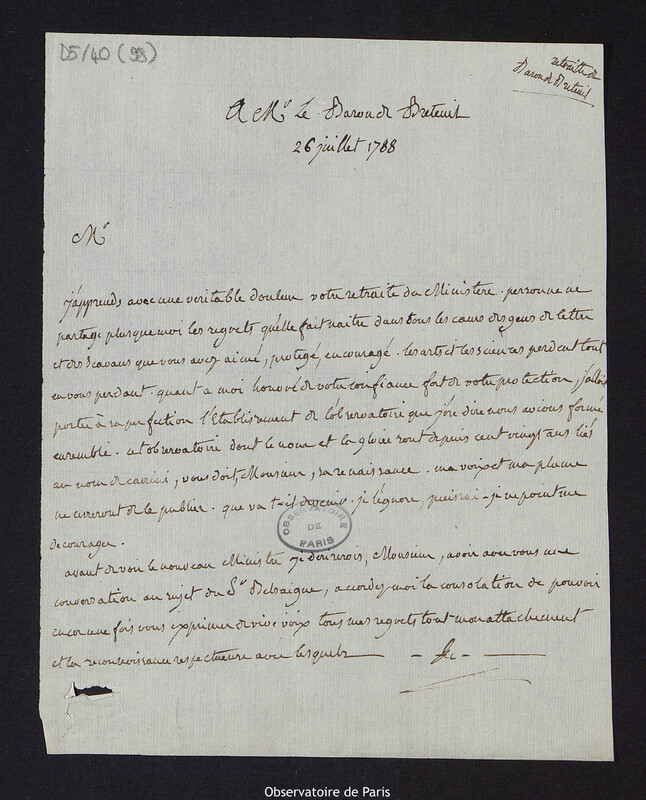 D5/40 (93)
retraitte de
Baron de Breteuil
A Mr Le Baron de Breteuil
26 juillet 1788
Mr
j'apprends avec une veritable douleur votre retraitte du Ministère. personne ne
partage plus que moi les regrets qu'elle fait naitre dans tous les cœurs des gens de lettre
et des sçavans que vous avez aimé, protégé, encouragé. les arts et les sciences perdent tout
en vous perdant. quant a moi honoré de votre confiance fort de votre protection j'allois
porter à sa perfection l'Etablissement de l'observatoire que j'ose dire nous avions formé
ensemble. cet observatoire dont le nom et la gloire sont depuis cent vingt ans liés
au nom de cassini, vous doit, Monsieur, sa renaissance. ma voix et ma plume
ne cesseront de le publier. que va t-il devenir. je l'ignore, puissai-je ne point me
decourager.
avant de voir le nouveau Ministre je desirerois, Monsieur, avoir avec vous une
conversation au sujet du Sr Delsaigue, accordez moi la consolation de pouvoir
encor une fois vous exprimer de vive voix tous mes regrets tout mon attachement
et la reconnoissance respectueuse avec lesquels — &c. —
OBSERVATOIRE
DE
PARIS
Observatoire de Paris